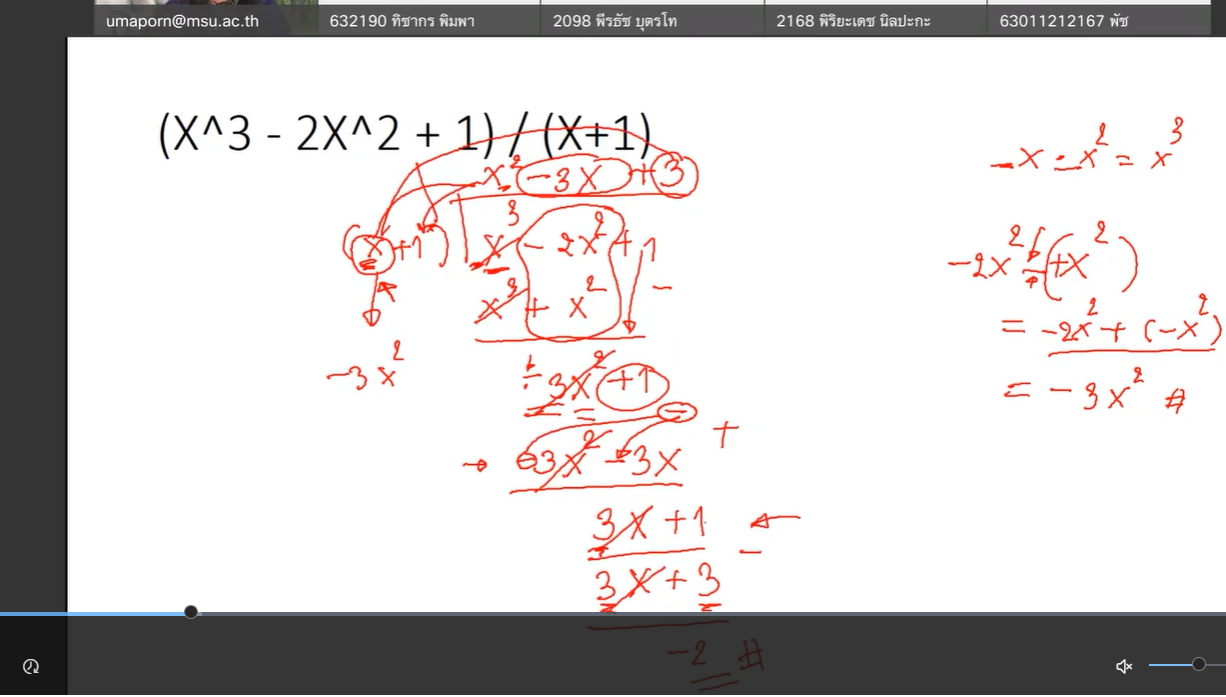 umaporn@msu.ac.th
632190 ทิชากร พิมพา
2098 พีรธัช บุตรโท
2168 พิริยะเดช นิลปะกะ
63011212167 พัช
(X^3 - 2X^2 + 1) / (X+1)
x² -3x +3
(x+1) x³ - 2x² + 1
x³ + x² -
-3x² +1
-
-3x² -3x +
3x +1
-
3x + 3
-2 #
-3x²
-x · x² = x³
-2x² - (+x²)
= -2x² + (-x²)
= -3x² #